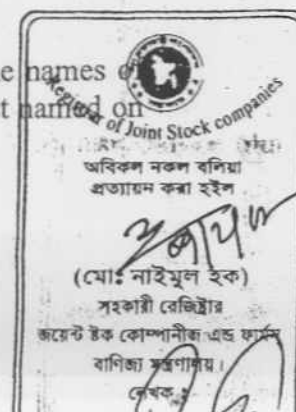 e names of
t named on
Registrar of Joint Stock companies
অবিকল নকল বলিয়া
প্রত্যায়ন করা হইল
(মোঃ নাইমুল হক)
সহকারী রেজিষ্ট্রার
জয়েন্ট ষ্টক কোম্পানীজ এন্ড ফার্মস
বাণিজ্য মন্ত্রণালয়।
লেখক :